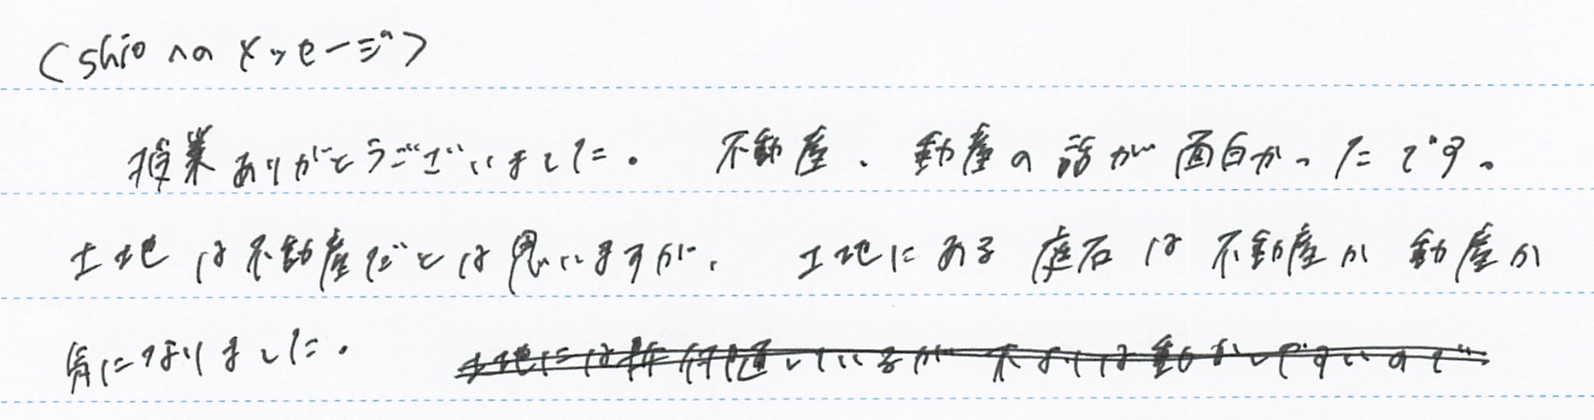 (shioへのメッセージ)
授業ありがとうございました。 不動産、動産の話が面白かったです。
土地は不動産だとは思いますが、 土地にある庭石は不動産か動産か
気になりました。